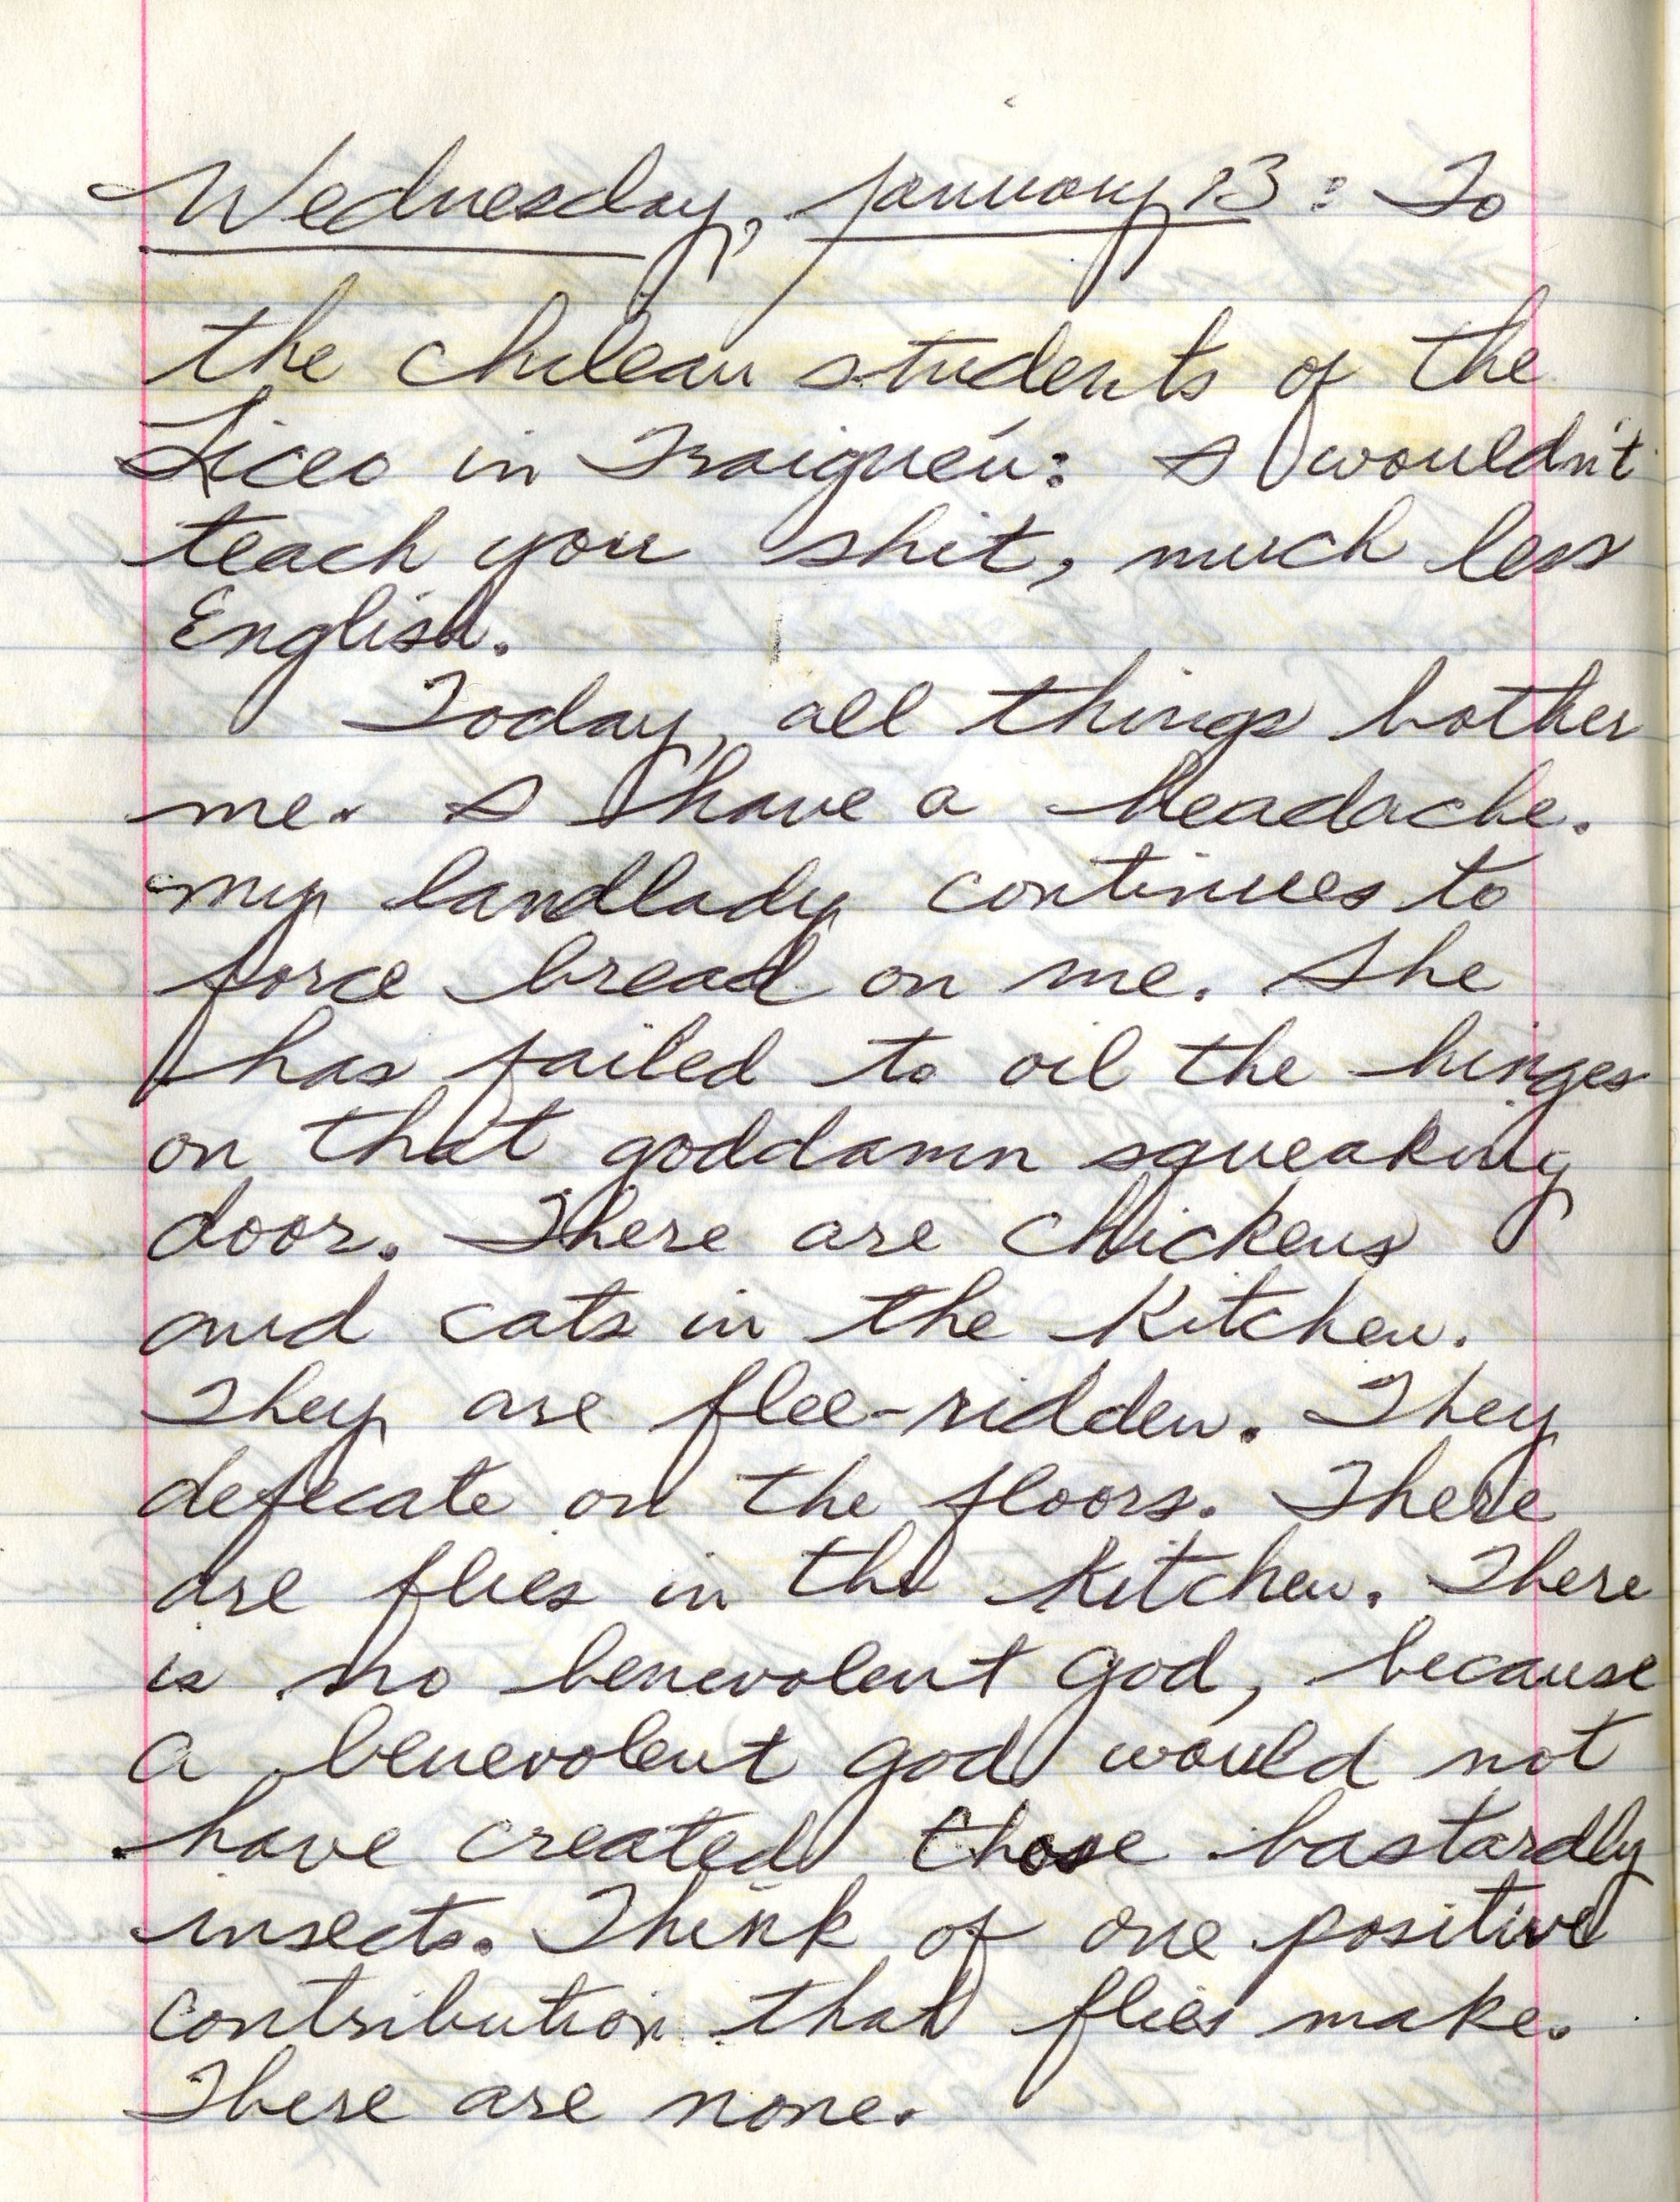 Wednesday, January 13: To
the Chilean students of the
Liceo in Traiguén: I wouldn't
teach you shit, much less
English.
Today, all things bother
me. I have a headache.
My landlady continues to
force bread on me. She
has failed to oil the hinges
on that goddamn squeaking
door. There are chickens
and cats in the kitchen.
They are flee-ridden. They
defecate on the floors. There
are flies in the kitchen. There
is no benevolent God, because
a benevolent god would not
have created those bastardly
insects. Think of one positive
contribution that flies make.
There are none.